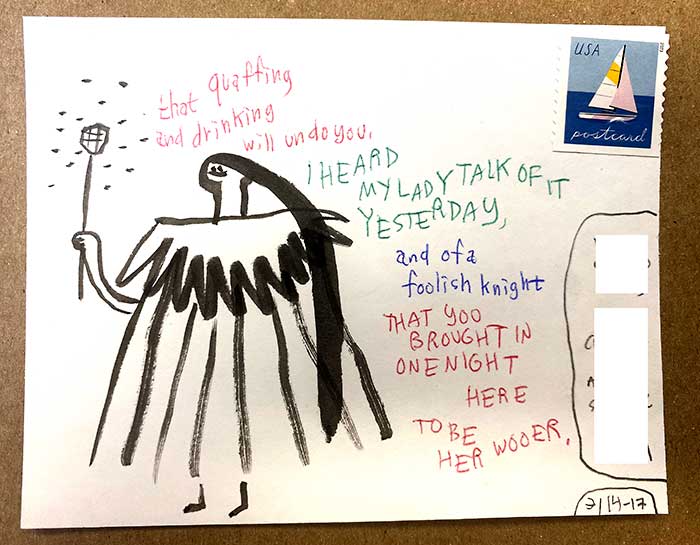 that quaffing
and drinking
will undo you.
I HEARD
MY LADY TALK OF IT
YESTERDAY,
and of a
foolish knight
THAT YOU
BROUGHT IN
ONE NIGHT
HERE
TO BE
HER WOOER.
USA
postcard
2/14-17